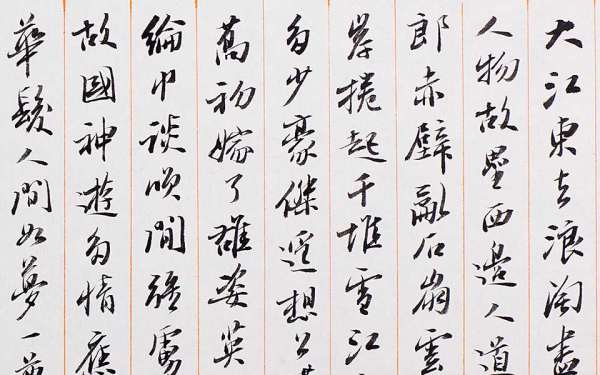 大江東去浪淘盡
人物故壘西邊人道
郎赤壁亂石崩雲
岸捲起千堆雪江
多少豪傑遥想公
喬初嫁了雄姿英
綸巾談笑間強虜
故國神遊多情應
華髮人間如夢一